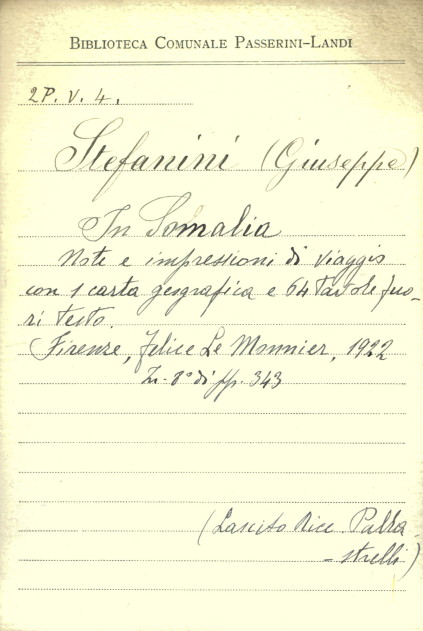 BIBLIOTECA COMUNALE PASSERINI-LANDI
2P. V. 4.
Stefanini (Giuseppe)
In Somalia
Note e impressioni di viaggio
con 1 carta geografica e 64 tavole fuo-
ri testo.
Firenze, Felice Le Monnier, 1922
In-8° di pp. 343
(Lascito Nicc. Palla-
-strelli)